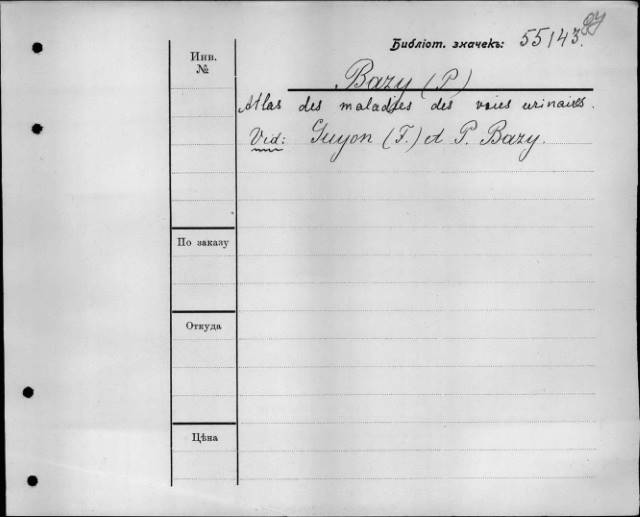 Библіот. значекъ: 55143.
Инв.
№
Bazy (P)
Atlas des maladies des voies urinaires.
Vid: Guyon (F.) et P. Bazy.
По заказу
Откуда
Цѣна